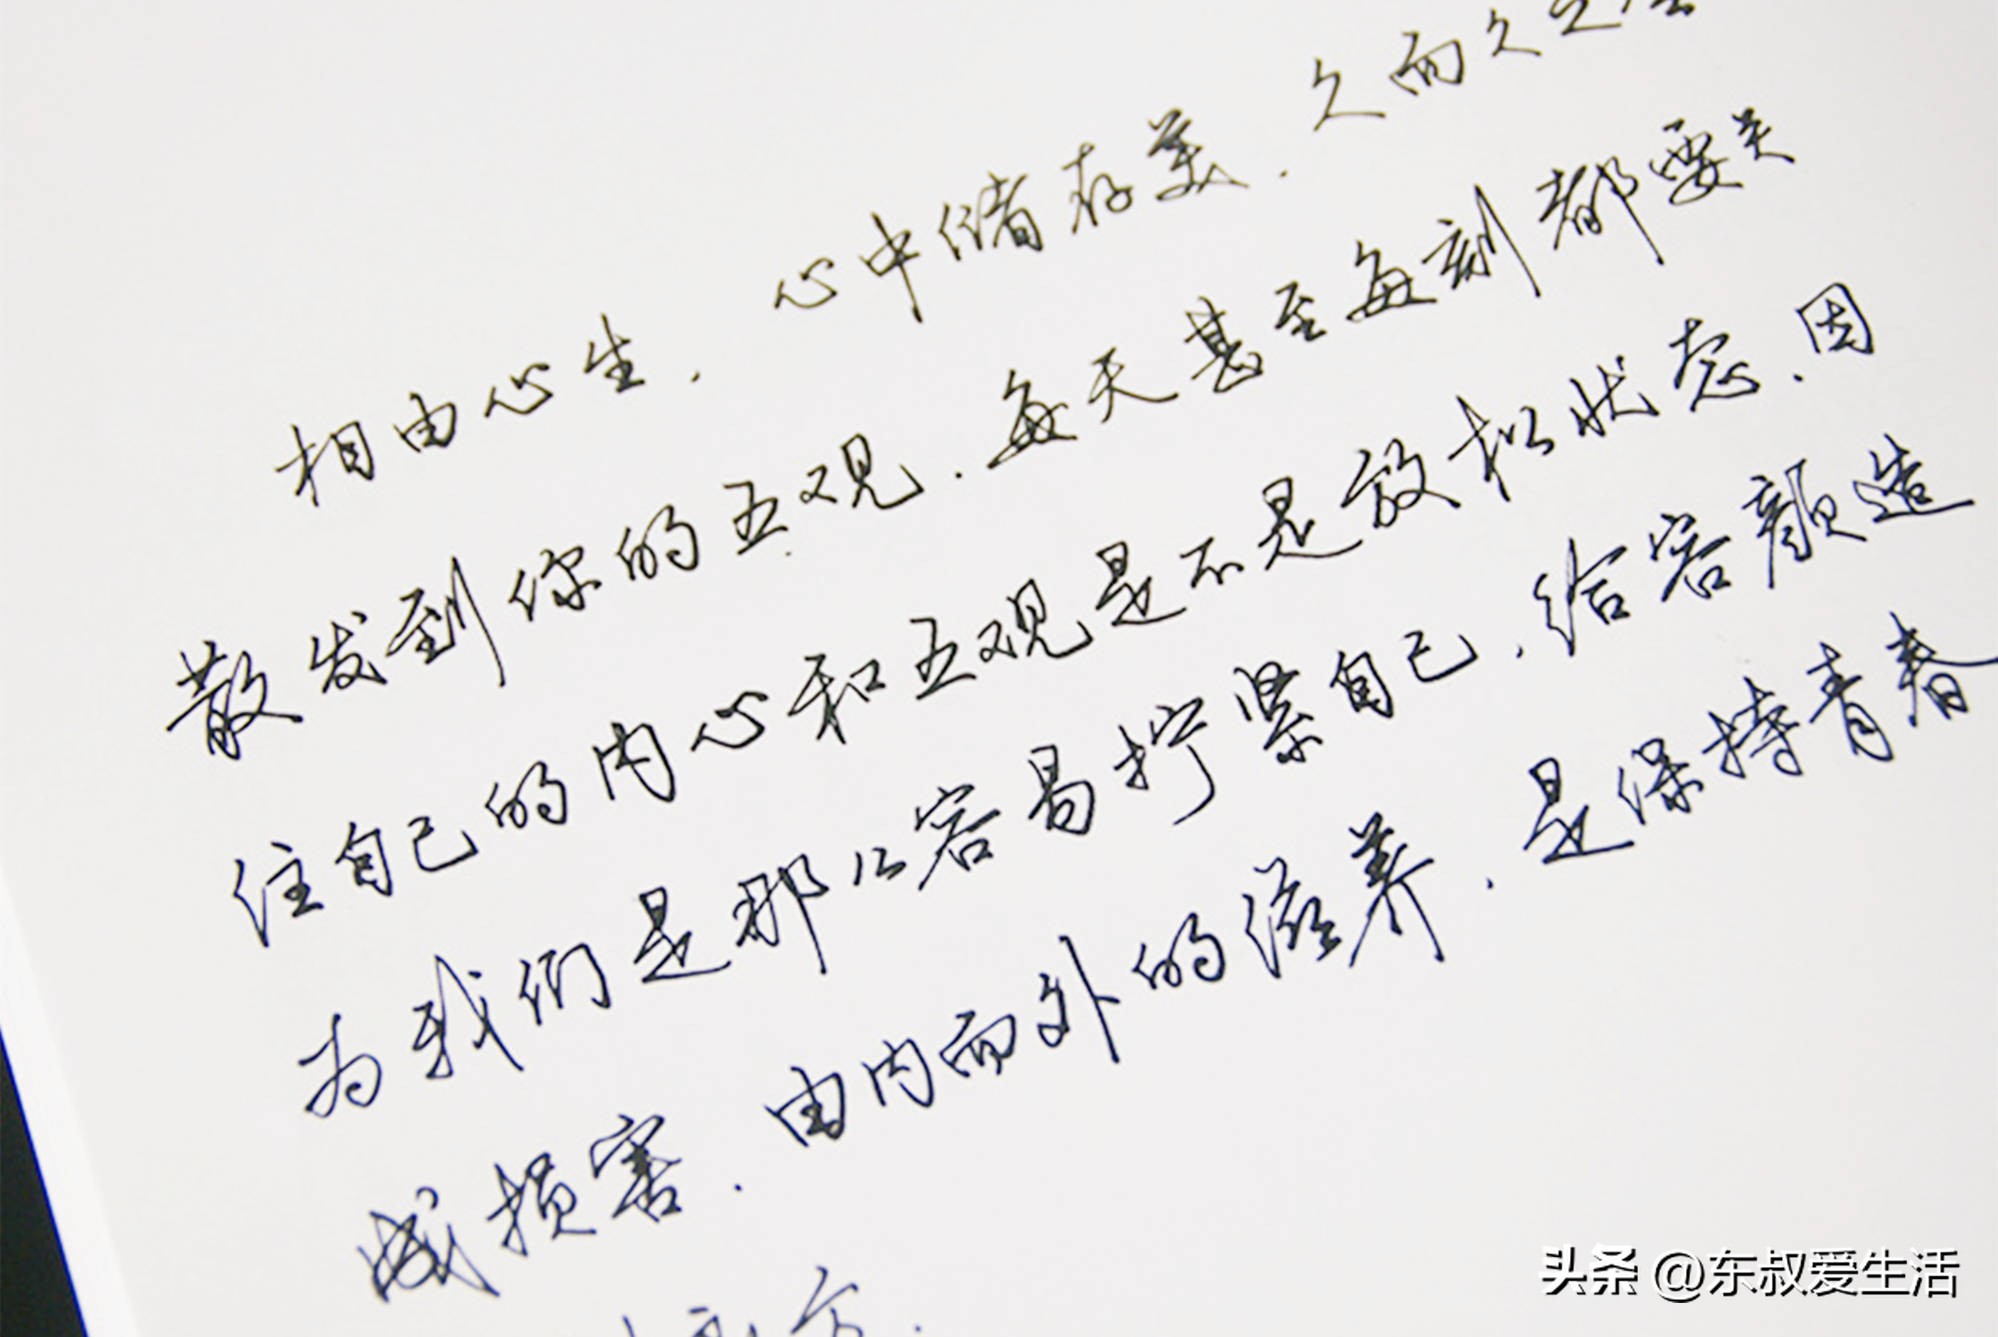 相由心生，心中储存美，久而久之
散发到你的五观，每天甚至每刻都要关
住自己的内心和五观是不是放松状态，因
为我们是那么容易拧紧自己，给容颜造
成损害，由内而外的滋养，是保持青春
方.
头条 @东叔爱生活